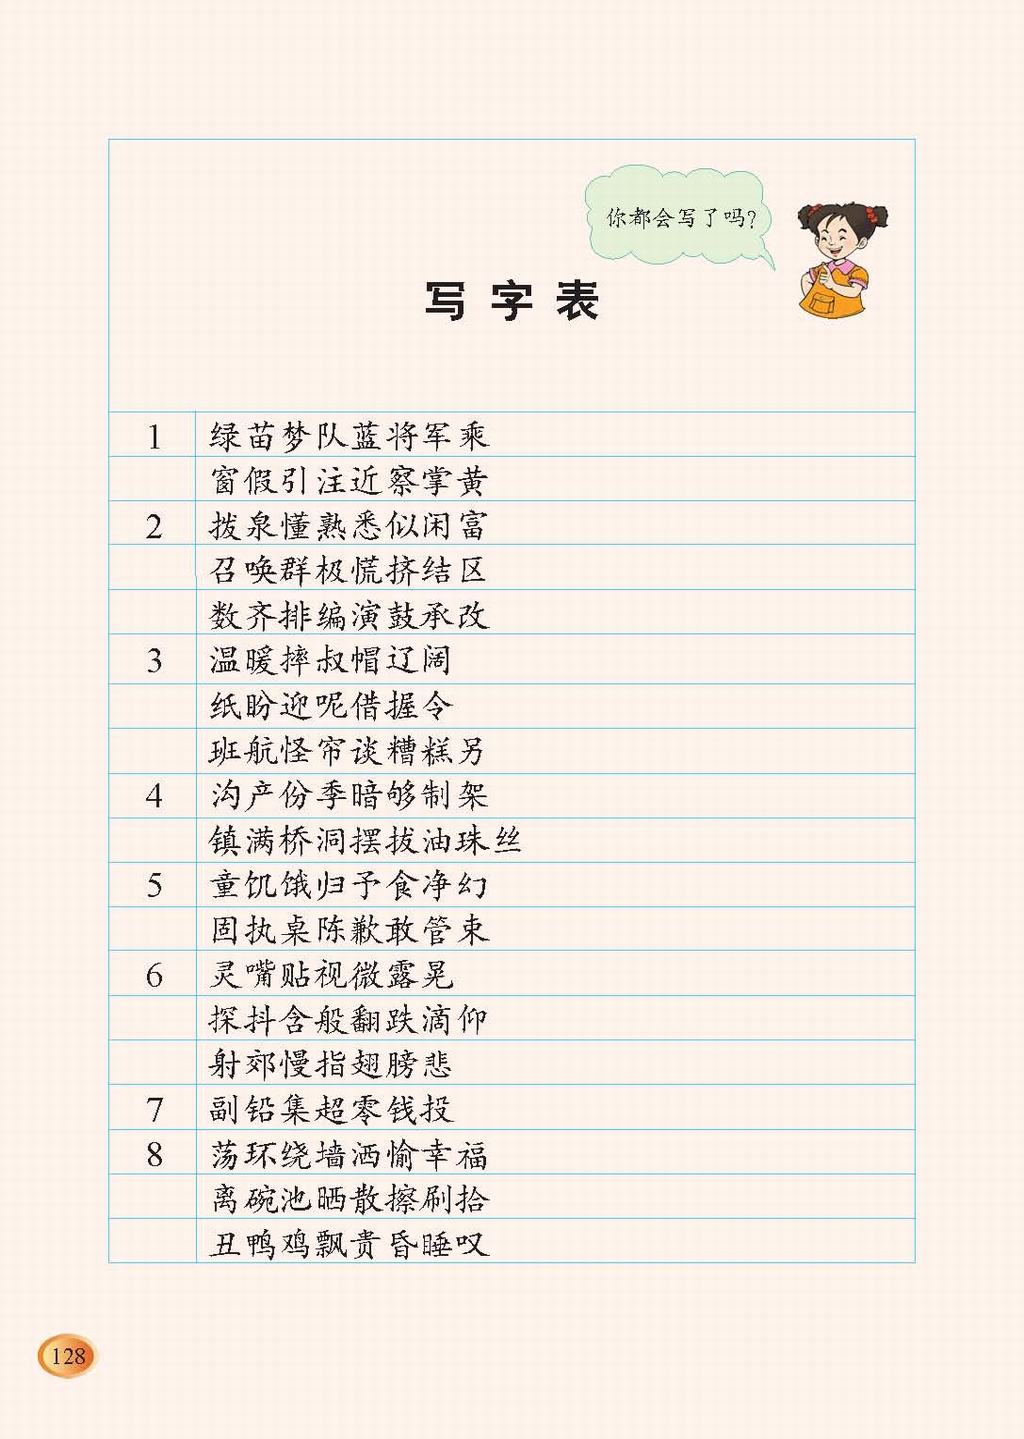 你都会写了吗？
写字表
1 绿苗梦队蓝将军乘
窗假引注近察掌黄
2 拨泉懂熟悉似闲富
召唤群极慌挤结区
数齐排编演鼓承改
3 温暖摔叔帽辽阔
纸盼迎呢借握令
班航怪帘谈糟糕另
4 沟产份季暗够制架
镇满桥洞摆拔油珠丝
5 童饥饿归予食净幻
固执桌陈歉敢管束
6 灵嘴贴视微露晃
探抖含般翻跌滴仰
射郊慢指翅膀悲
7 副铅集超零钱投
8 荡环绕墙洒愉幸福
离碗池晒散擦刷拾
丑鸭鸡飘贵昏睡叹
128